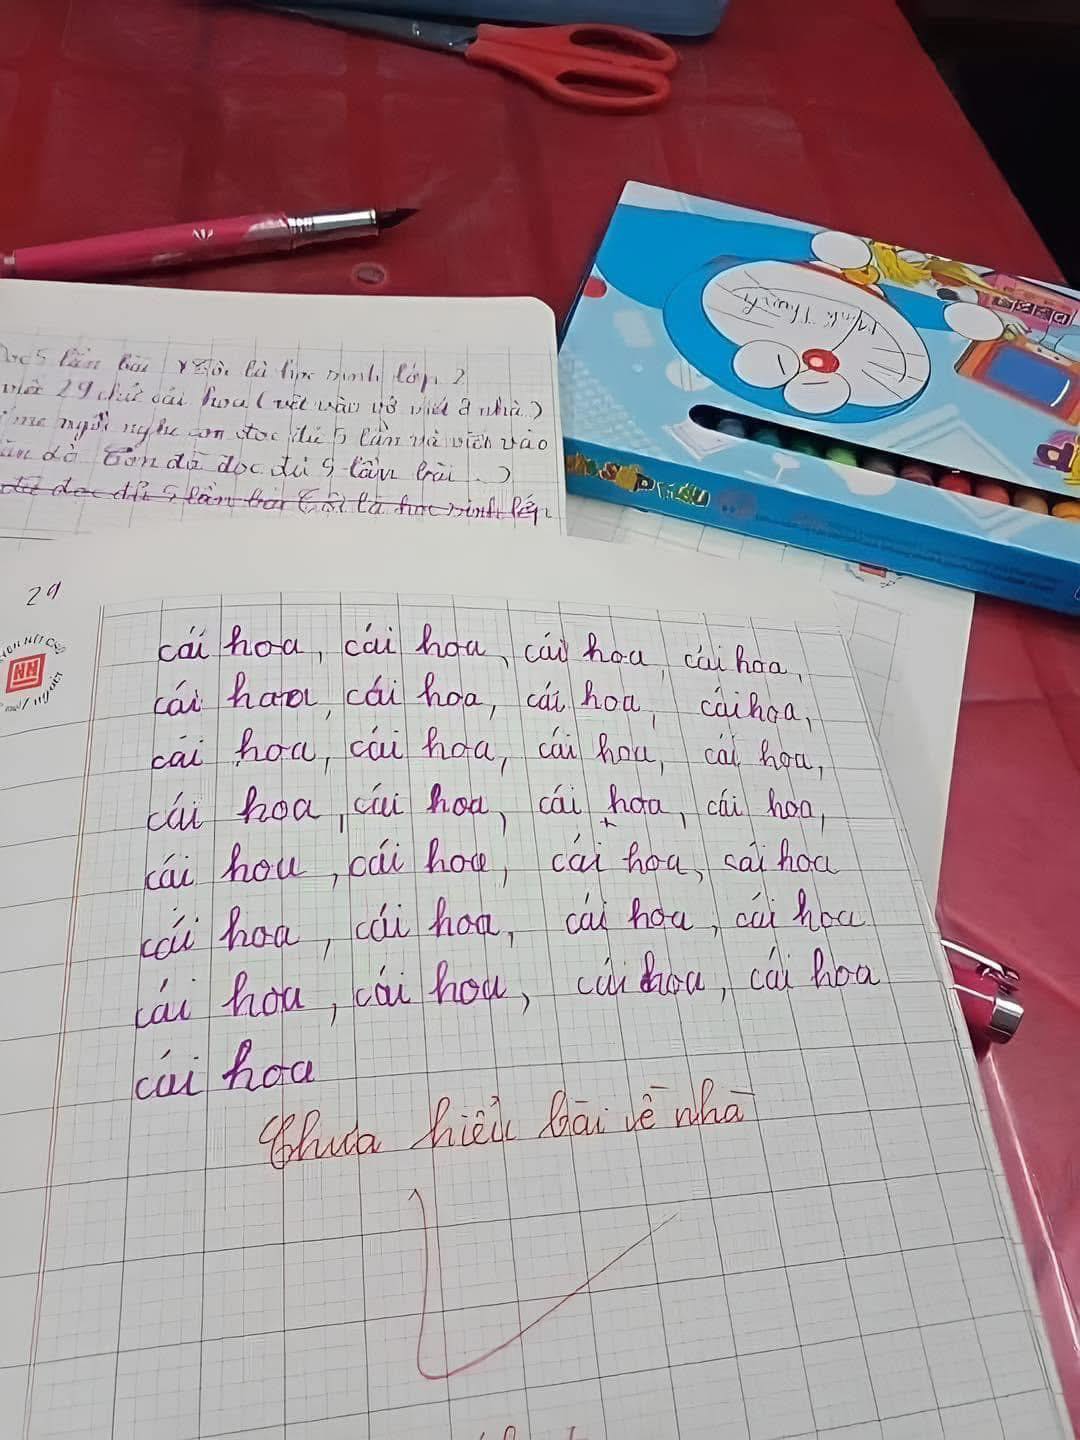 5 lần bài Tôi là học sinh lớp 2
viết 29 chữ cái hoa (viết vào vở viết ở nhà)
mẹ ngồi nghe con đọc đủ 5 lần và viết vào
dặn dò Con đã đọc đủ 5 lần bài...)
đã đọc đủ 5 lần bài Tôi là học sinh lớp
Minh Thanh
29
cái hoa, cái hoa, cái hoa, cái hoa,
cái hoa, cái hoa, cái hoa, cái hoa,
cái hoa, cái hoa, cái hoa, cái hoa,
cái hoa, cái hoa, cái hoa, cái hoa,
cái hoa, cái hoa, cái hoa, cái hoa
cái hoa, cái hoa, cái hoa, cái hoa
cái hoa, cái hoa, cái hoa, cái hoa
cái hoa
Chưa hiểu bài về nhà